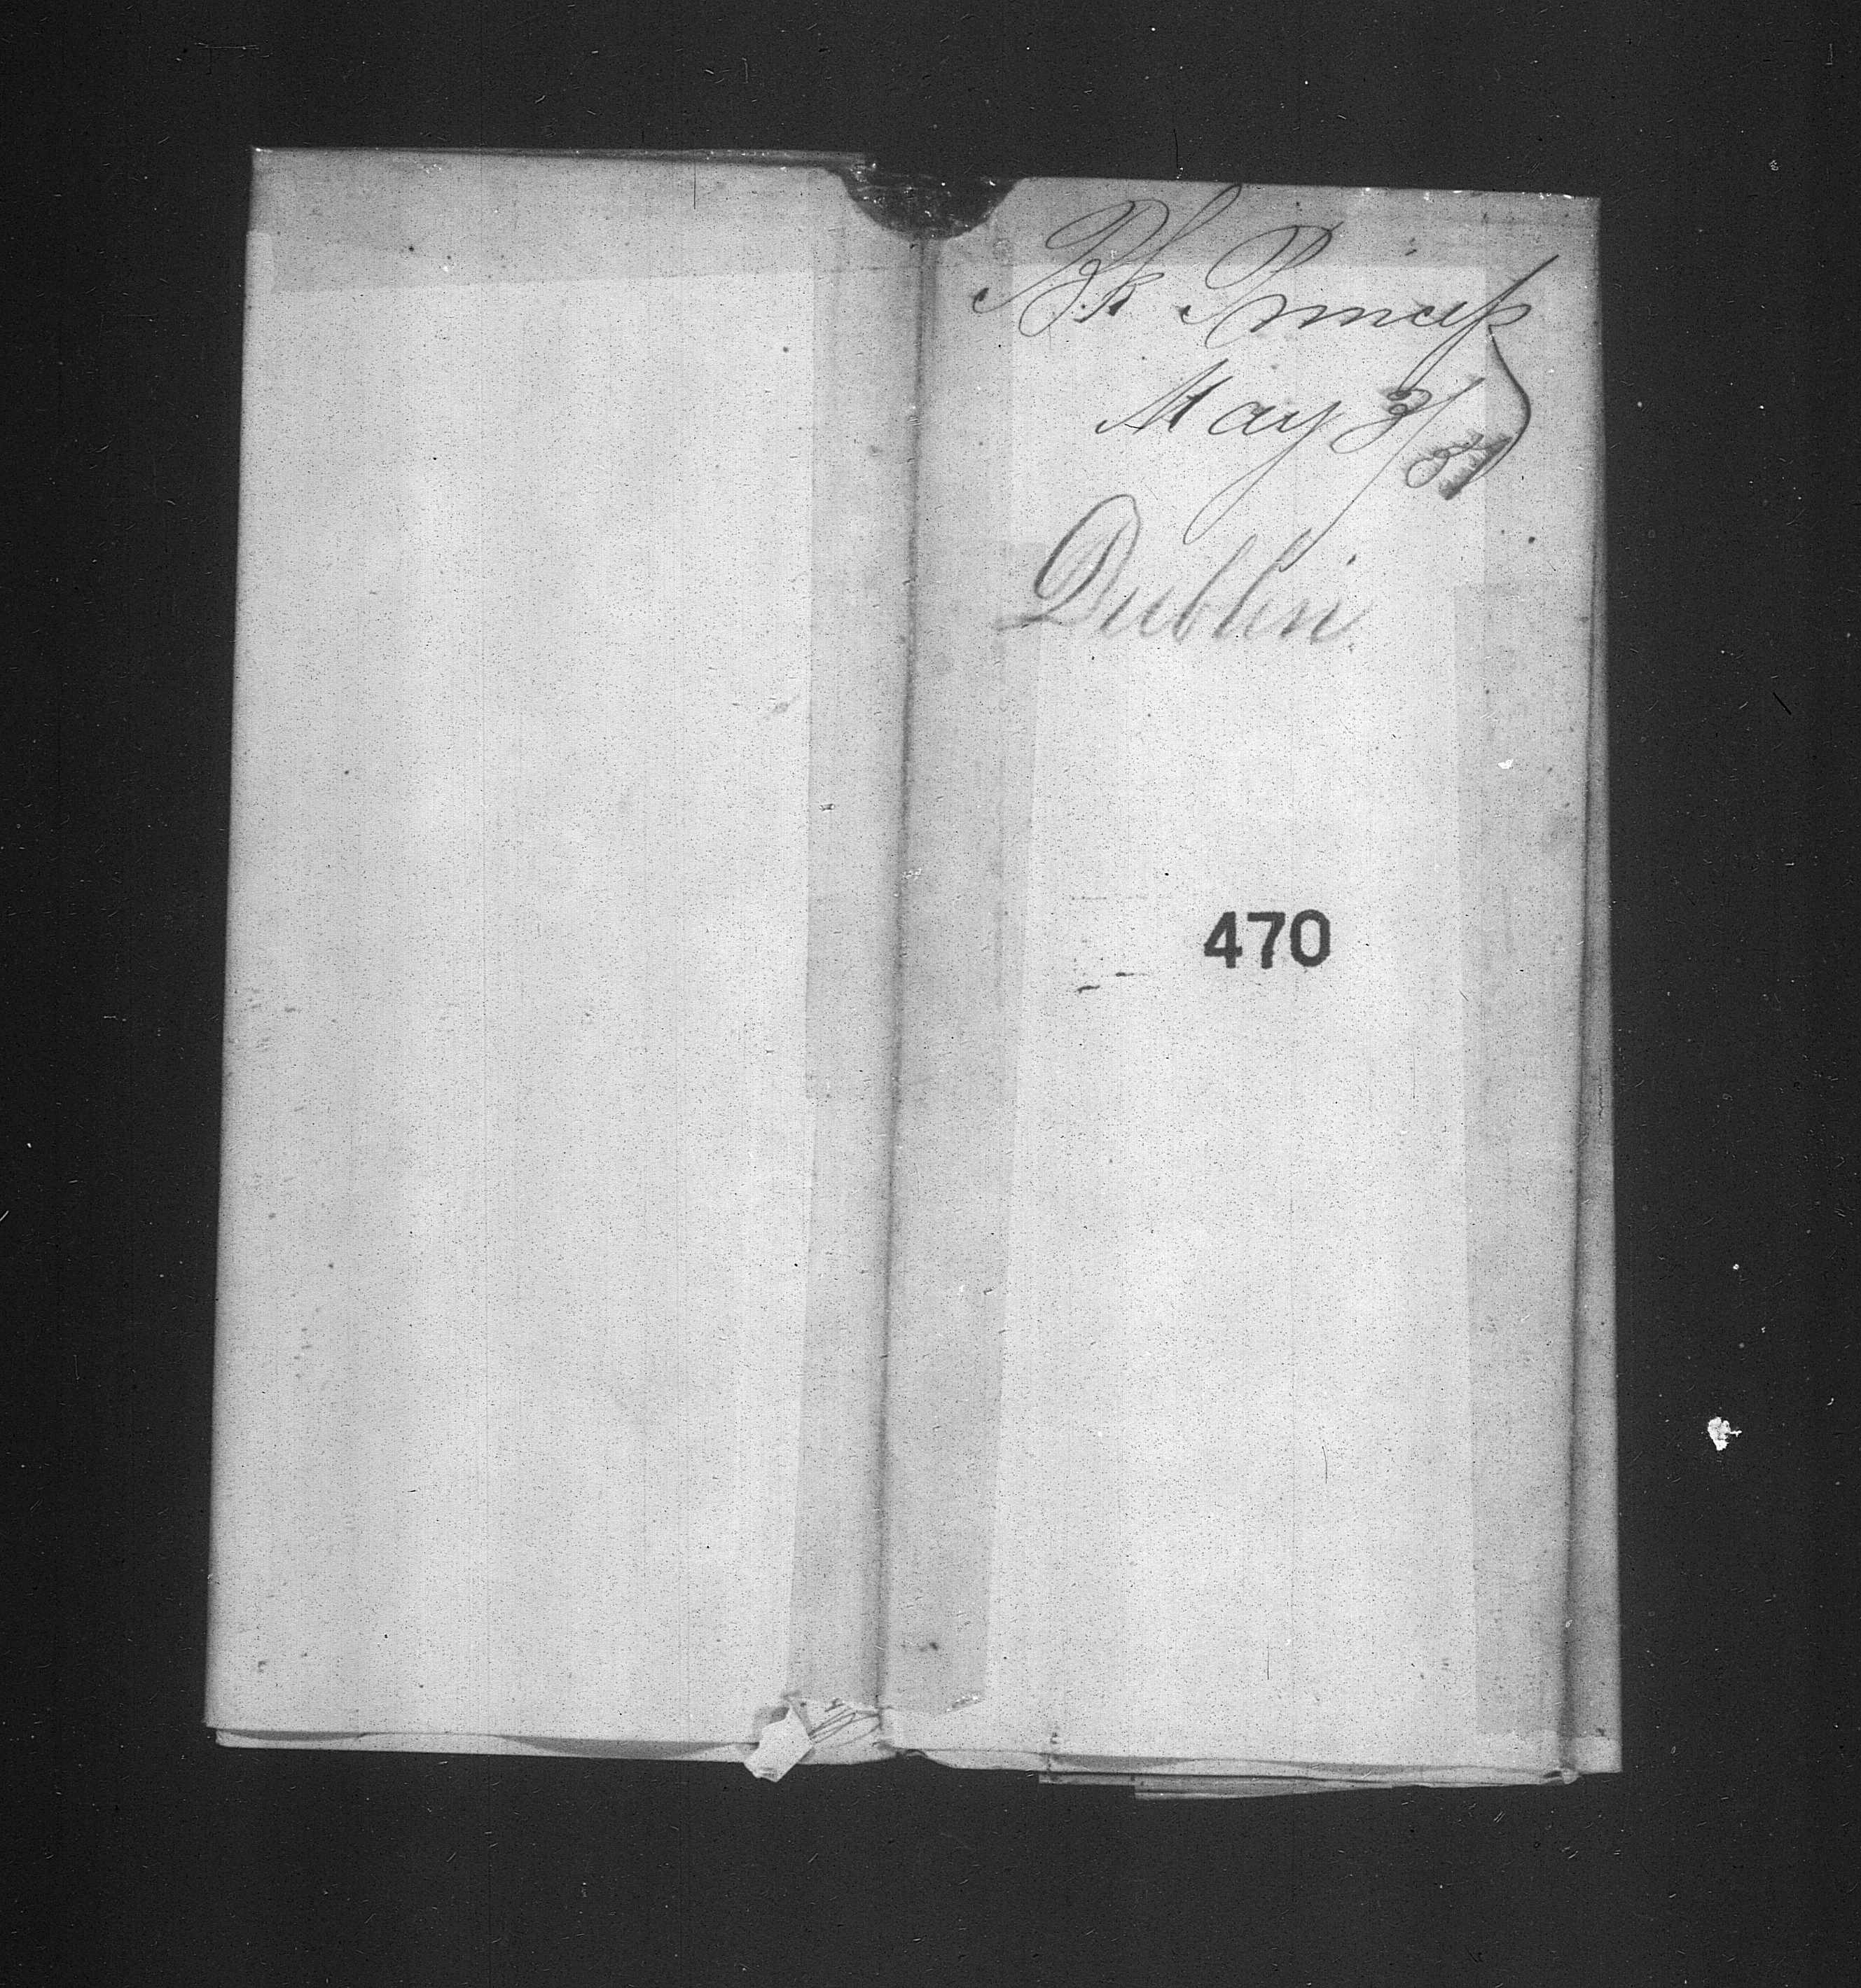 Bk Princess
May 3/31
Dublin.
470